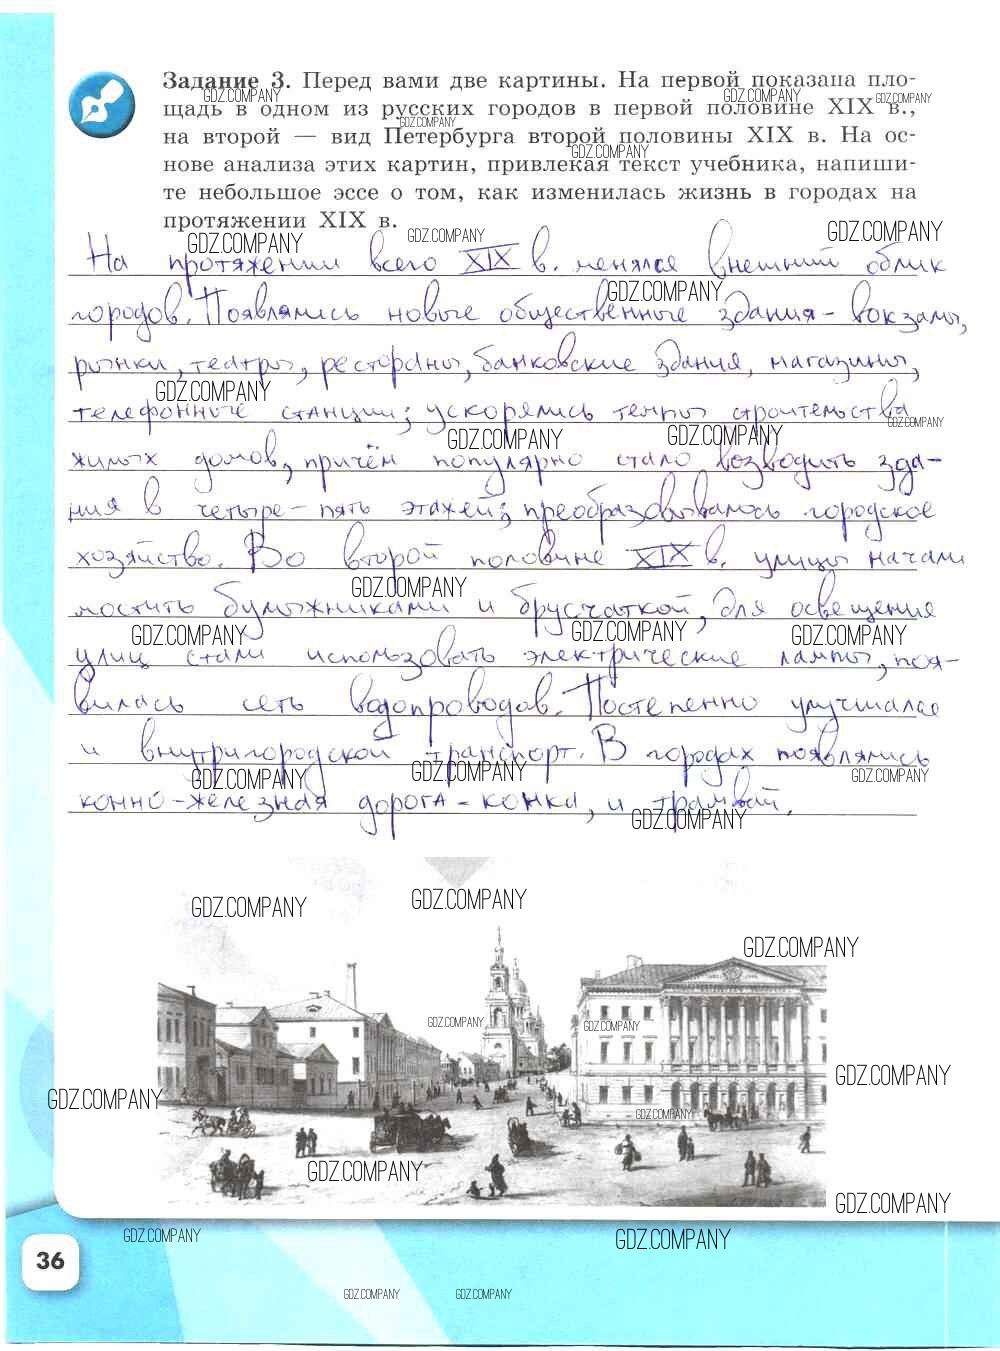 Задание 3. Перед вами две картины. На первой показана пло-
щадь в одном из русских городов в первой половине XIX в.,
на второй — вид Петербурга второй половины XIX в. На ос-
нове анализа этих картин, привлекая текст учебника, напиши-
те небольшое эссе о том, как изменилась жизнь в городах на
протяжении XIX в.
На протяжении всего XIX в. менялся внешний облик
городов. Появлялись новые общественные здания - вокзалы,
рынки, театры, рестораны, банковские здания, магазины,
телефонные станции; ускорялись темпы строительства
жилых домов, причём популярно стало возводить зда-
ния в четыре-пять этажей; преобразовывалось городское
хозяйство. Во второй половине XIX в. улицы начали
мостить булыжниками и брусчаткой, для освещения
улиц стали использовать электрические лампы, поя-
вилась сеть водопроводов. Постепенно улучшался
и внутригородской транспорт. В городах появлялись
конно-железная дорога - конка, и трамвай.
GDZ.COMPANY
36